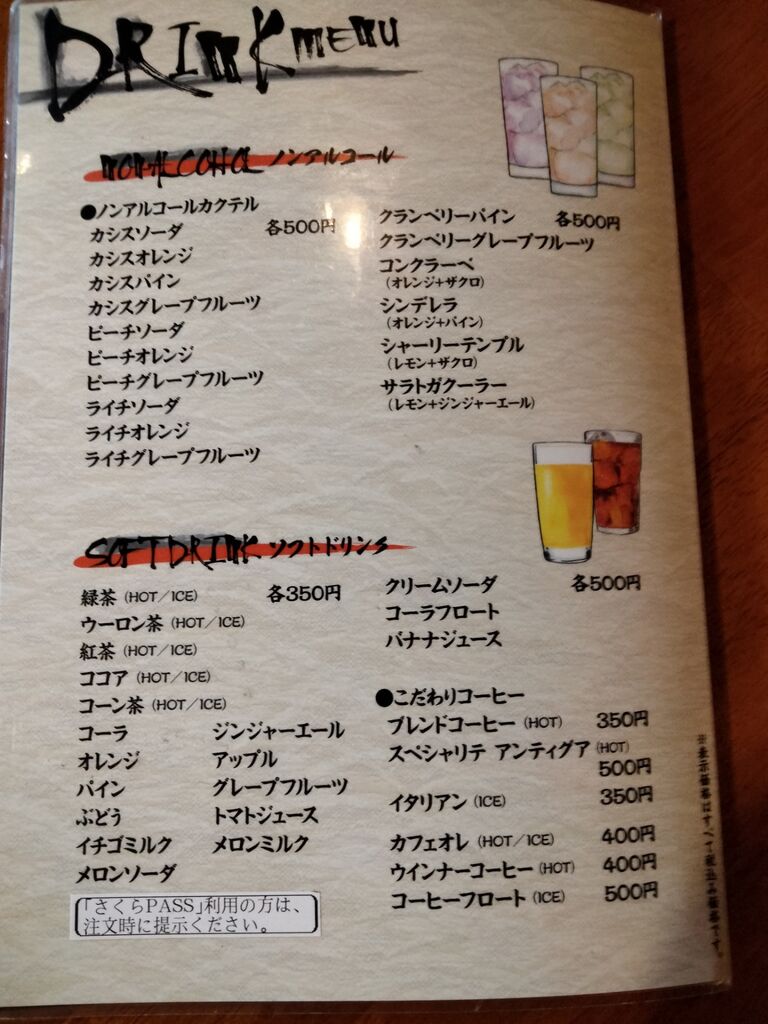 DRINK MENU
NONALCOHOL ノンアルコール
●ノンアルコールカクテル
カシスソーダ 各500円
カシスオレンジ
カシスパイン
カシスグレープフルーツ
ピーチソーダ
ピーチオレンジ
ピーチグレープフルーツ
ライチソーダ
ライチオレンジ
ライチグレープフルーツ
クランベリーパイン 各500円
クランベリーグレープフルーツ
コンクラーベ
(オレンジ+ザクロ)
シンデレラ
(オレンジ+パイン)
シャーリーテンプル
(レモン+ザクロ)
サラトガクーラー
(レモン+ジンジャーエール)
SOFTDRINK ソフトドリンク
緑茶 (HOT/ICE) 各350円
ウーロン茶 (HOT/ICE)
紅茶 (HOT/ICE)
ココア (HOT/ICE)
コーン茶 (HOT/ICE)
コーラ ジンジャーエール
オレンジ アップル
パイン グレープフルーツ
ぶどう トマトジュース
イチゴミルク メロンミルク
メロンソーダ
「さくらPASS」利用の方は、
注文時に提示ください。
クリームソーダ 各500円
コーラフロート
バナナジュース
●こだわりコーヒー
ブレンドコーヒー (HOT) 350円
スペシャリテ アンティグア (HOT)
500円
イタリアン (ICE) 350円
カフェオレ (HOT/ICE) 400円
ウインナーコーヒー (HOT) 400円
コーヒーフロート (ICE) 500円
※表示価格はすべて税込み価格です。